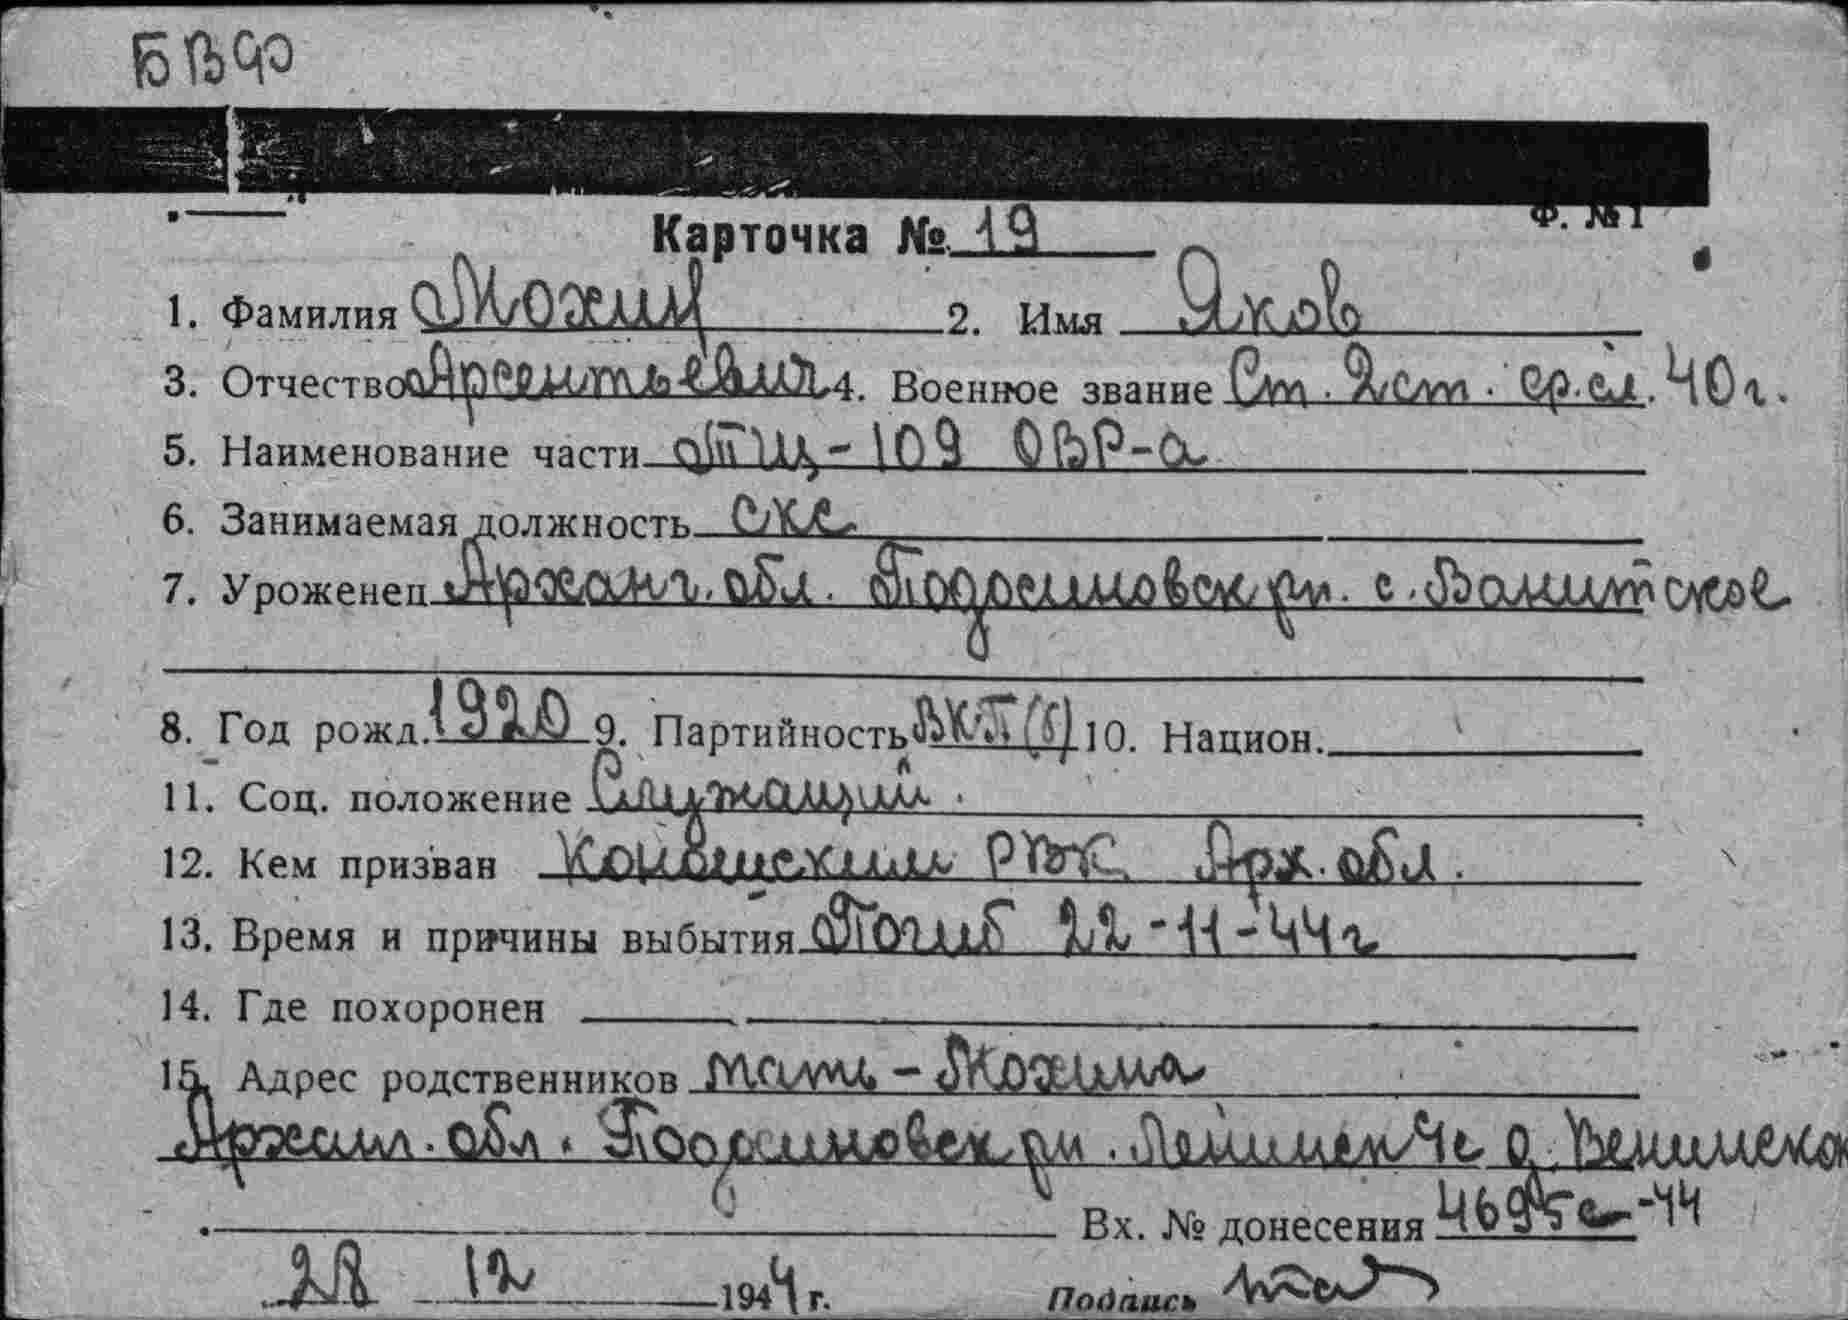 БВФ
Ф. №1
Карточка № 19
1. Фамилия Мохин 2. Имя Яков
3. Отчество Арсентьевич 4. Военное звание Ст. 2 ст. ср. сл. 40 г.
5. Наименование части ТЩ-109 ОВР-а
6. Занимаемая должность
7. Уроженец Арханг. обл. Подосиновск рн. с.
8. Год рожд. 1920 9. Партийность ВКП(б) 10. Национ.
11. Соц. положение Служащий.
12. Кем призван РВК Арх. обл.
13. Время и причины выбытия Погиб 22-11-44 г
14. Где похоронен
15. Адрес родственников мать - Мохина
Архан. обл. Подосиновск рн.
Вх. № донесения -44
28 12 1944 г. Подпись